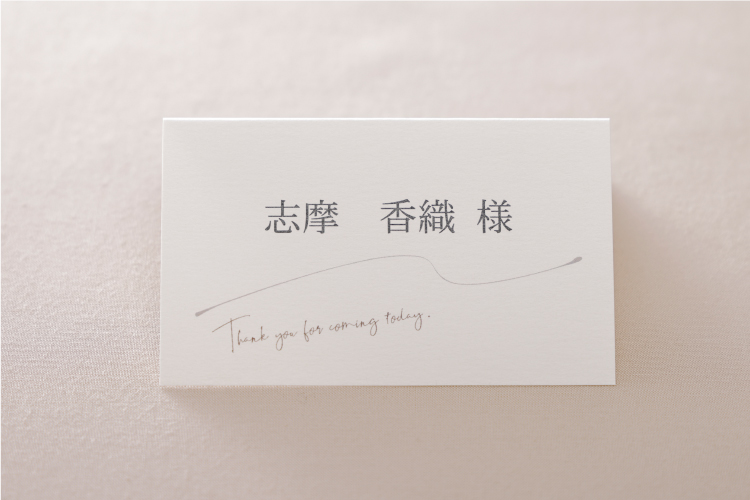 志摩　香織 様
Thank you for coming today.